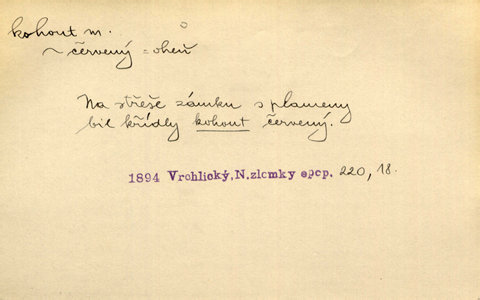 kohout m.
~ červený = oheň
Na střeše zámku s plameny
bil křídly kohout červený.
1894 Vrchlický, N. zlomky epop. 220, 18.